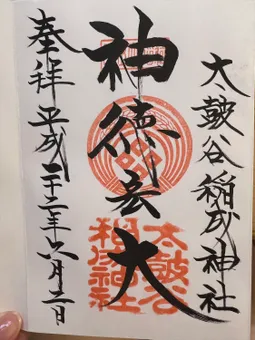 太皷谷稲成神社
神徳宏大
太皷谷
稲成神社
奉拝平成二十二年六月二日